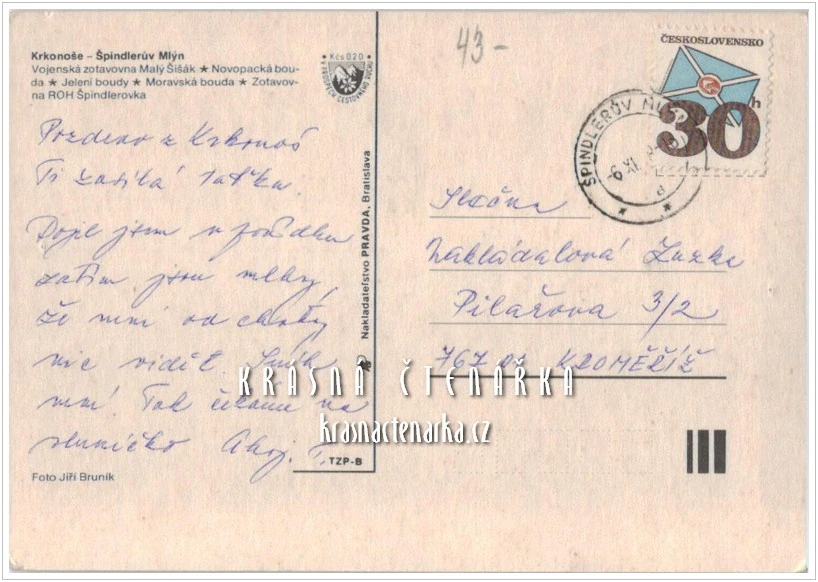 Krkonoše – Špindlerův Mlýn
Vojenská zotavovna Malý Šišák ★ Novopacká bou-
da ★ Jelení boudy ★ Moravská bouda ★ Zotavov-
na ROH Špindlerovka
Kčs 0,20
Pozdrav z Krkonoš
Ti zasílá taťka.
Dojel jsem v pořádku
zatím jsou mlhy,
že není od chaty
nic vidět. Sníh
není. Tak čekáme na
sluníčko Ahoj. T.
TZP-B
Foto Jiří Bruník
Nakladatelstvo PRAVDA, Bratislava
43-
ČESKOSLOVENSKO
30h
ŠPINDLERŮV MLÝN
Slečna
Zakládalová Zuzka
Pilařova 3/2
767 01 KROMĚŘÍŽ
KRÁSNÁ ČTENÁŘKA
krasnactenarka.cz